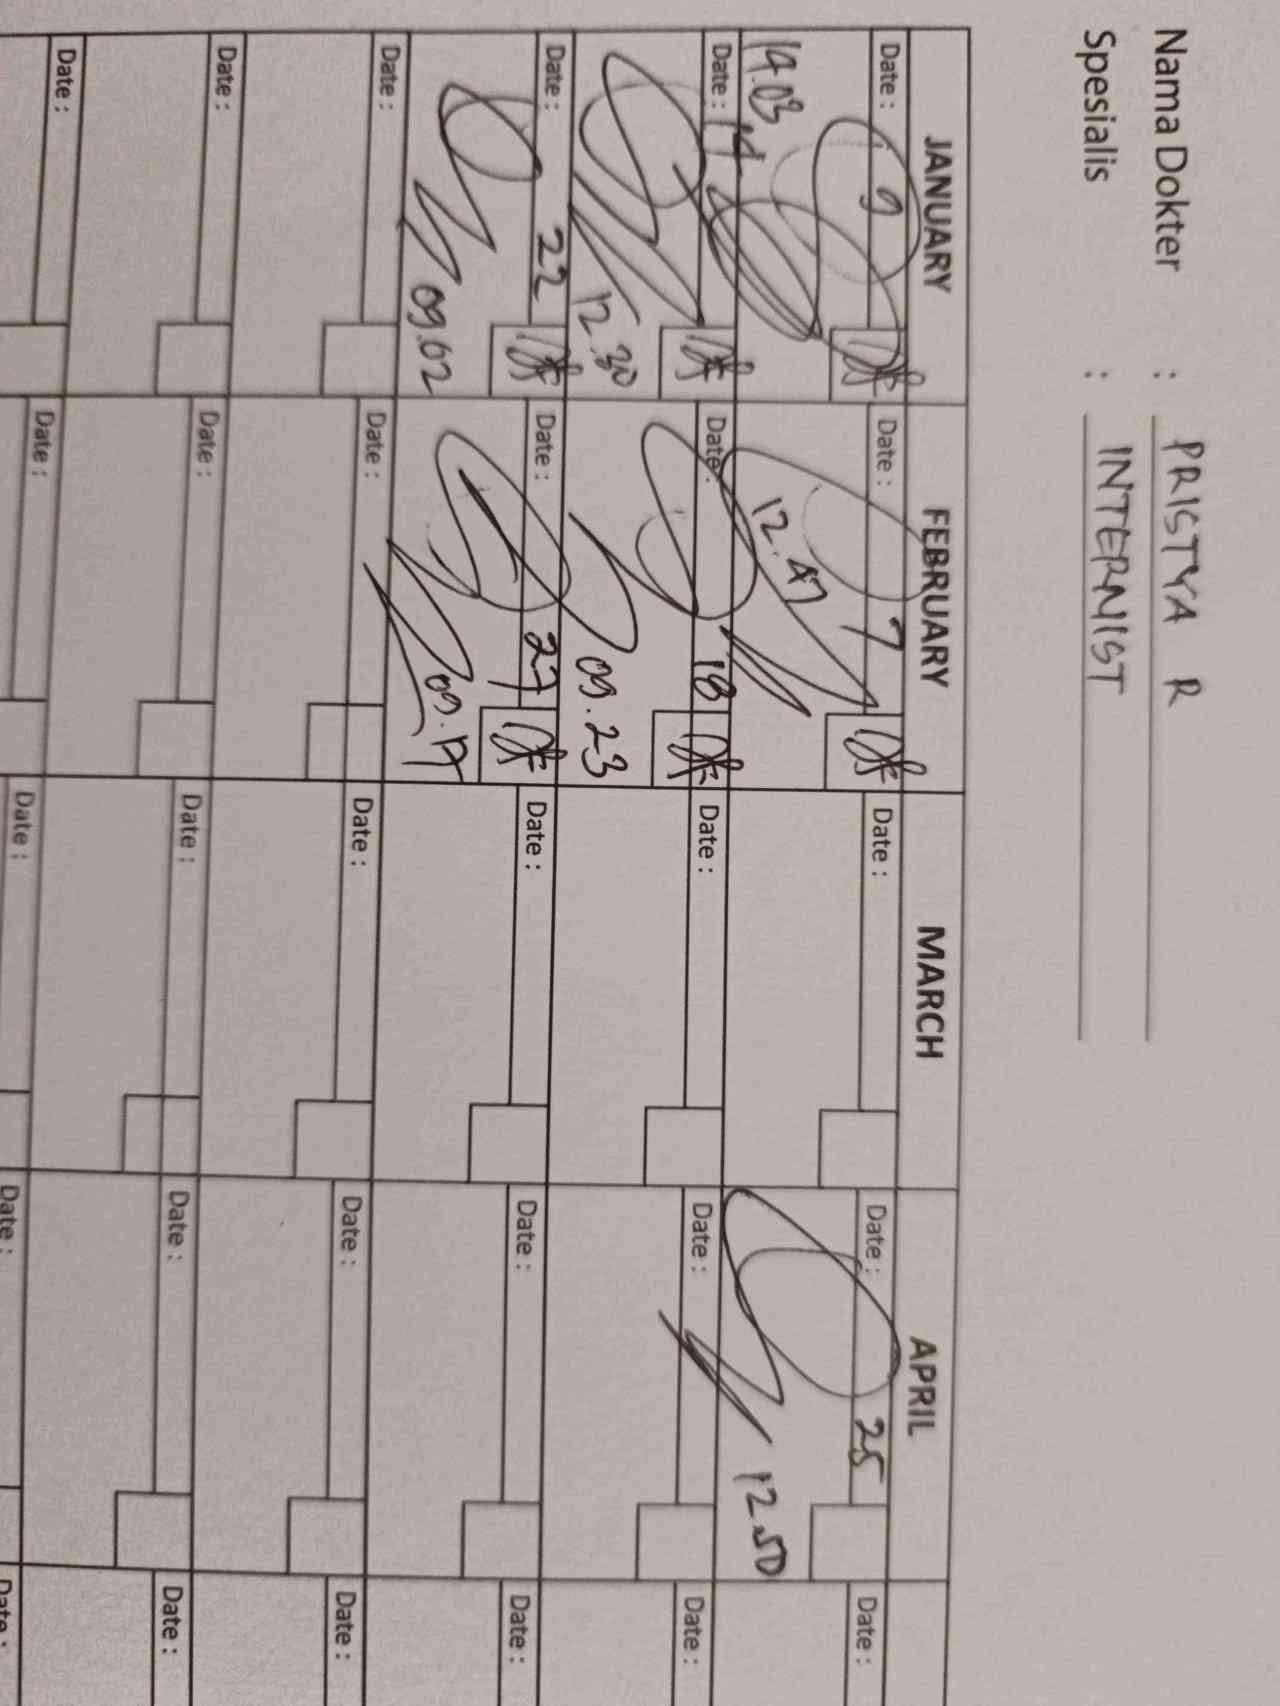 Nama Dokter : PRISTYA R
Spesialis : INTERNIST
JANUARY FEBRUARY MARCH APRIL
Date : 9 Date : 7 Date : Date : 25 Date :
14.03 12.47 12.50
Date : 14 Date : 18 Date : Date : Date :
12.30 09.23
Date : 22 Date : 27 Date : Date : Date :
09.02 09.17
Date : Date : Date : Date : Date :
Date : Date : Date : Date : Date :
Date : Date : Date : Date : Date :